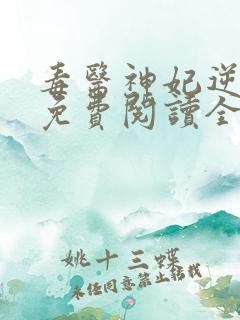 毒醫神妃逆
免費閱讀全
姚十三蝶
未经同意禁止转载